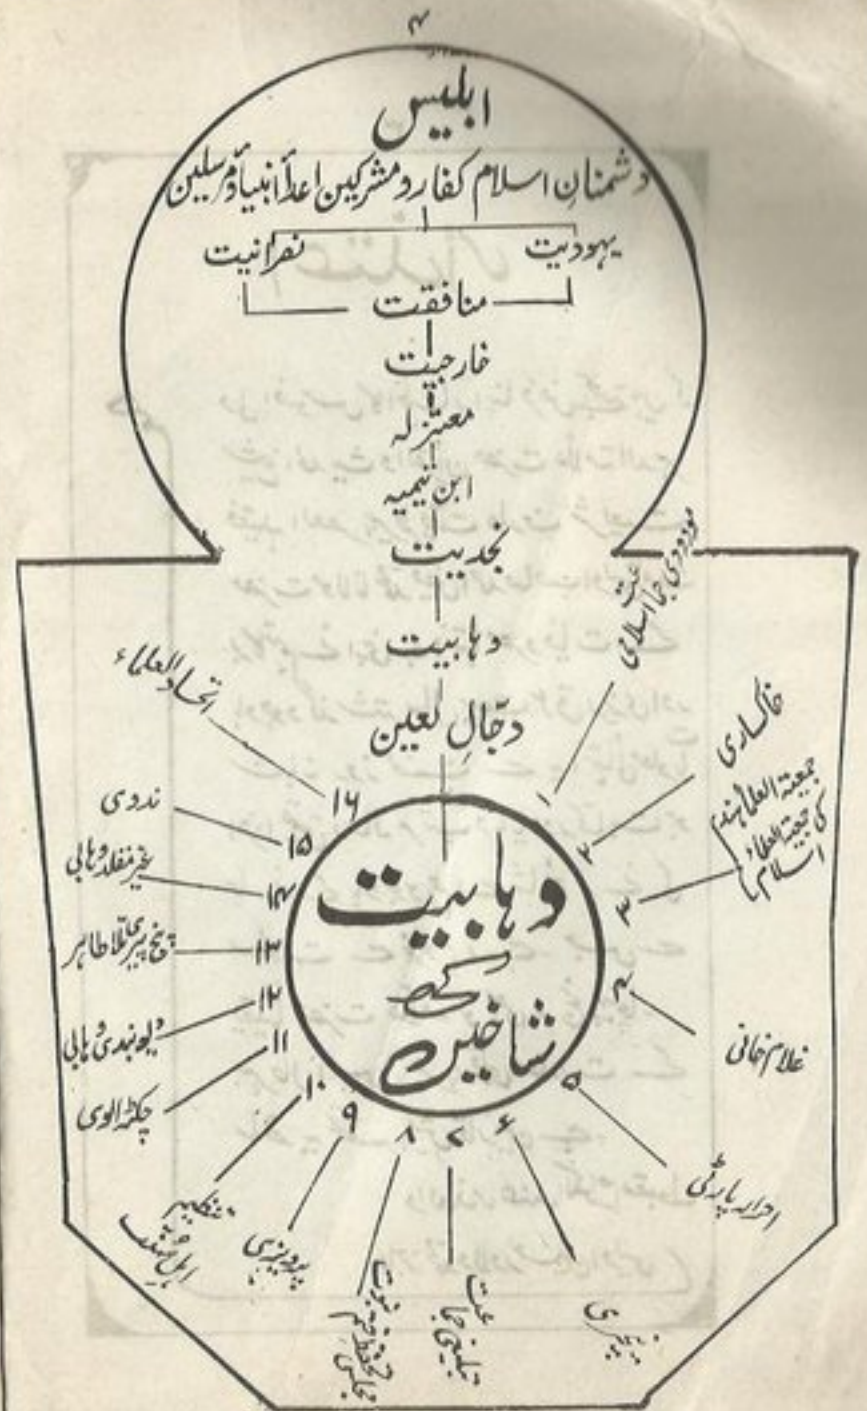 ۴
ابلیس
دشمنانِ اسلام کفار و مشرکین اعدأ انبیأ و مرسلین
یہودیت نصرانیت
منافقت
خارجیت
معتزلہ
ابن تیمیہ
نجدیت
وہابیت
دجّالِ لعین
وہابیت
کی
شاخیں
۱ مودودی جماعت اسلامی
۲ خاکساری
۳ جمعیۃ العلمأ ہند کی جمعیۃ العلمأ اسلام
۴ غلام خانی
۵ احرار پارٹی
۶ نیچری
۷ تبلیغی جماعت
۸ مجلس تحفظ ختم نبوت
۹ پرویزی
۱۰ تنظیم اہل سنت
۱۱ چکڑالوی
۱۲ دیوبندی وہابی
۱۳ پنج پیری ملا طاہر
۱۴ غیر مقلد وہابی
۱۵ ندوی
۱۶ اتحاد العلماء